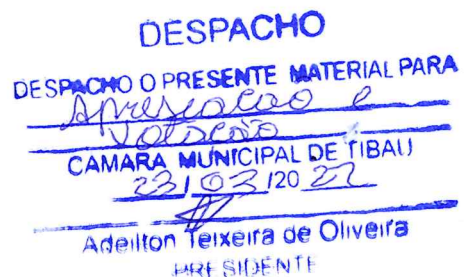 DESPACHO
DESPACHO O PRESENTE MATERIAL PARA
Apreciação e
Votação
CAMARA MUNICIPAL DE TIBAU
23/03/2022
Adeilton Teixeira de Oliveira
PRESIDENTE